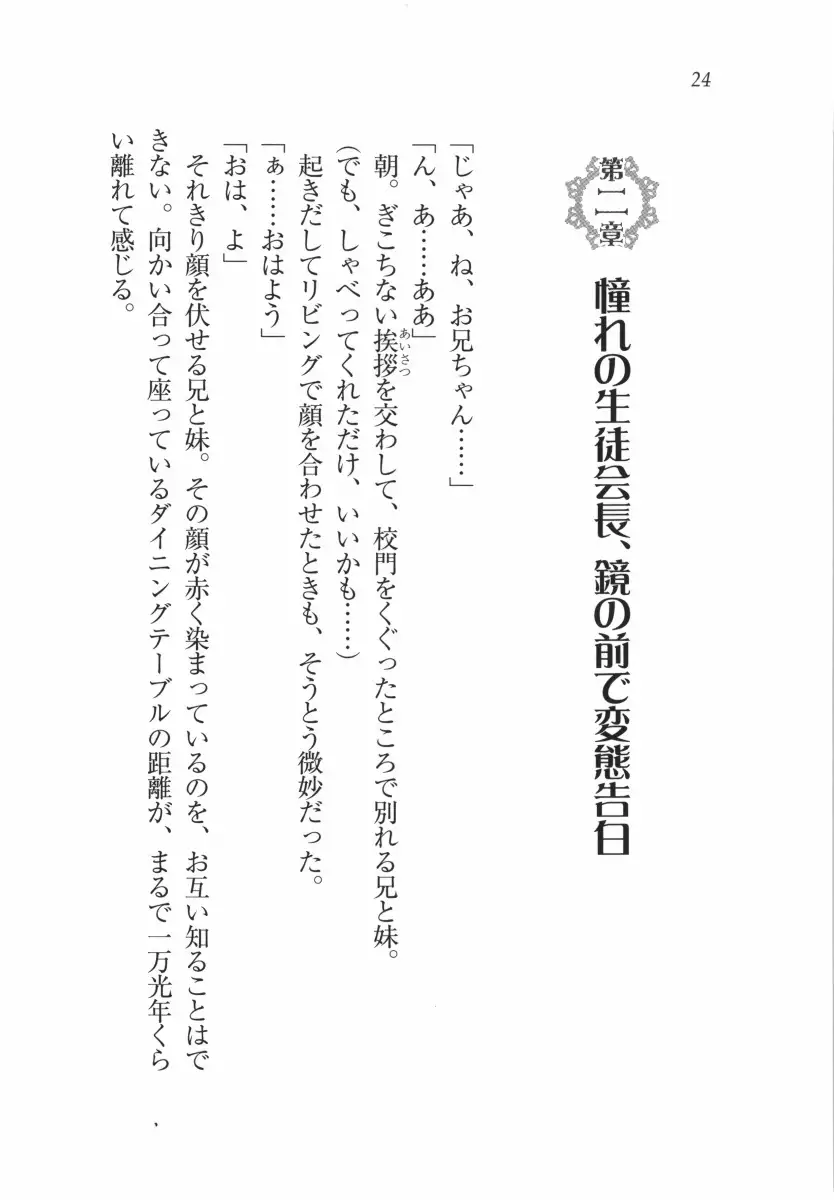 24
第二章
憧れの生徒会長、鏡の前で変態告白
「じゃあ、ね、お兄ちゃん……」
「ん、あ……ああ」
朝。ぎこちない挨拶を交わして、校門をくぐったところで別れる兄と妹。
あいさつ
(でも、しゃべってくれただけ、いいかも……)
起きだしてリビングで顔を合わせたときも、そうとう微妙だった。
「ぁ……おはよう」
「おは、よ」
それきり顔を伏せる兄と妹。その顔が赤く染まっているのを、お互い知ることはで
きない。向かい合って座っているダイニングテーブルの距離が、まるで一万光年くら
い離れて感じる。